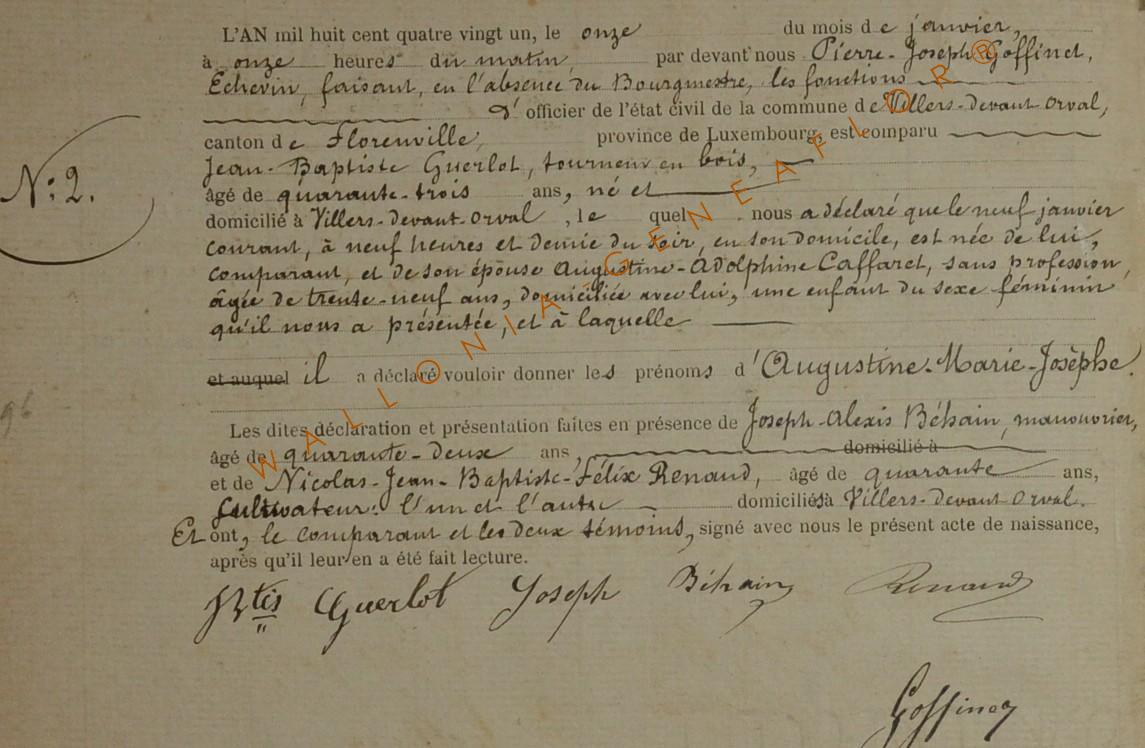 L'AN mil huit cent quatre vingt un, le onze du mois de janvier,
à onze heures du matin, par devant nous Pierre-Joseph Goffinet,
Echevin, faisant, en l'absence du Bourgmestre, les fonctions
d' officier de l'état civil de la commune de Villers-devant Orval,
canton de Florenville, province de Luxembourg, est comparu
Jean-Baptiste Guerlot, tourneur en bois,
âgé de quarante-trois ans, né et
domicilié à Villers-devant-Orval, lequel nous a déclaré que le neuf janvier
courant, à neuf heures et demie du soir, en son domicile, est née de lui,
comparant, et de son épouse Augustine-Adolphine Caffaret, sans profession,
âgée de trente-neuf ans, domiciliée avec lui, une enfant du sexe féminin
qu'il nous a présentée, et à laquelle
et auquel il a déclaré vouloir donner les prénoms d'Augustine-Marie-Josèphe.
Les dites déclaration et présentation faites en présence de Joseph-Alexis Béhain, manouvrier,
âgé de quarante-deux ans, domicilié à
et de Nicolas-Jean-Baptiste-Félix Renaud, âgé de quarante ans,
Cultivateur: l'un et l'autre domiciliés à Villers-devant Orval.
Et ont, le comparant et les deux témoins, signé avec nous le présent acte de naissance,
après qu'il leur en a été fait lecture.
N° 2.
96
Btis Guerlot Joseph Béhain Renaud
Goffinet
WALLONIA GENEAFLOR®